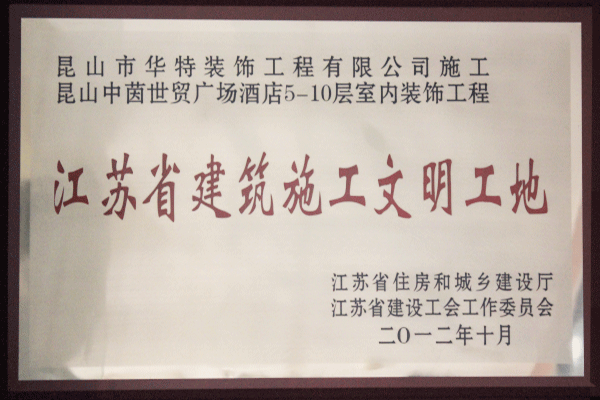 昆山市华特装饰工程有限公司施工
昆山中茵世贸广场酒店5-10层室内装饰工程
江苏省建筑施工文明工地
江苏省住房和城乡建设厅
江苏省建设工会工作委员会
二〇一二年十月